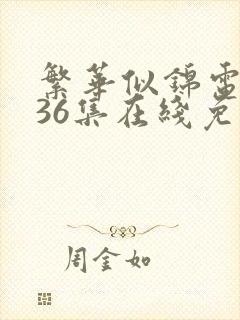 繁華似錦電
36集在綫免
周金如